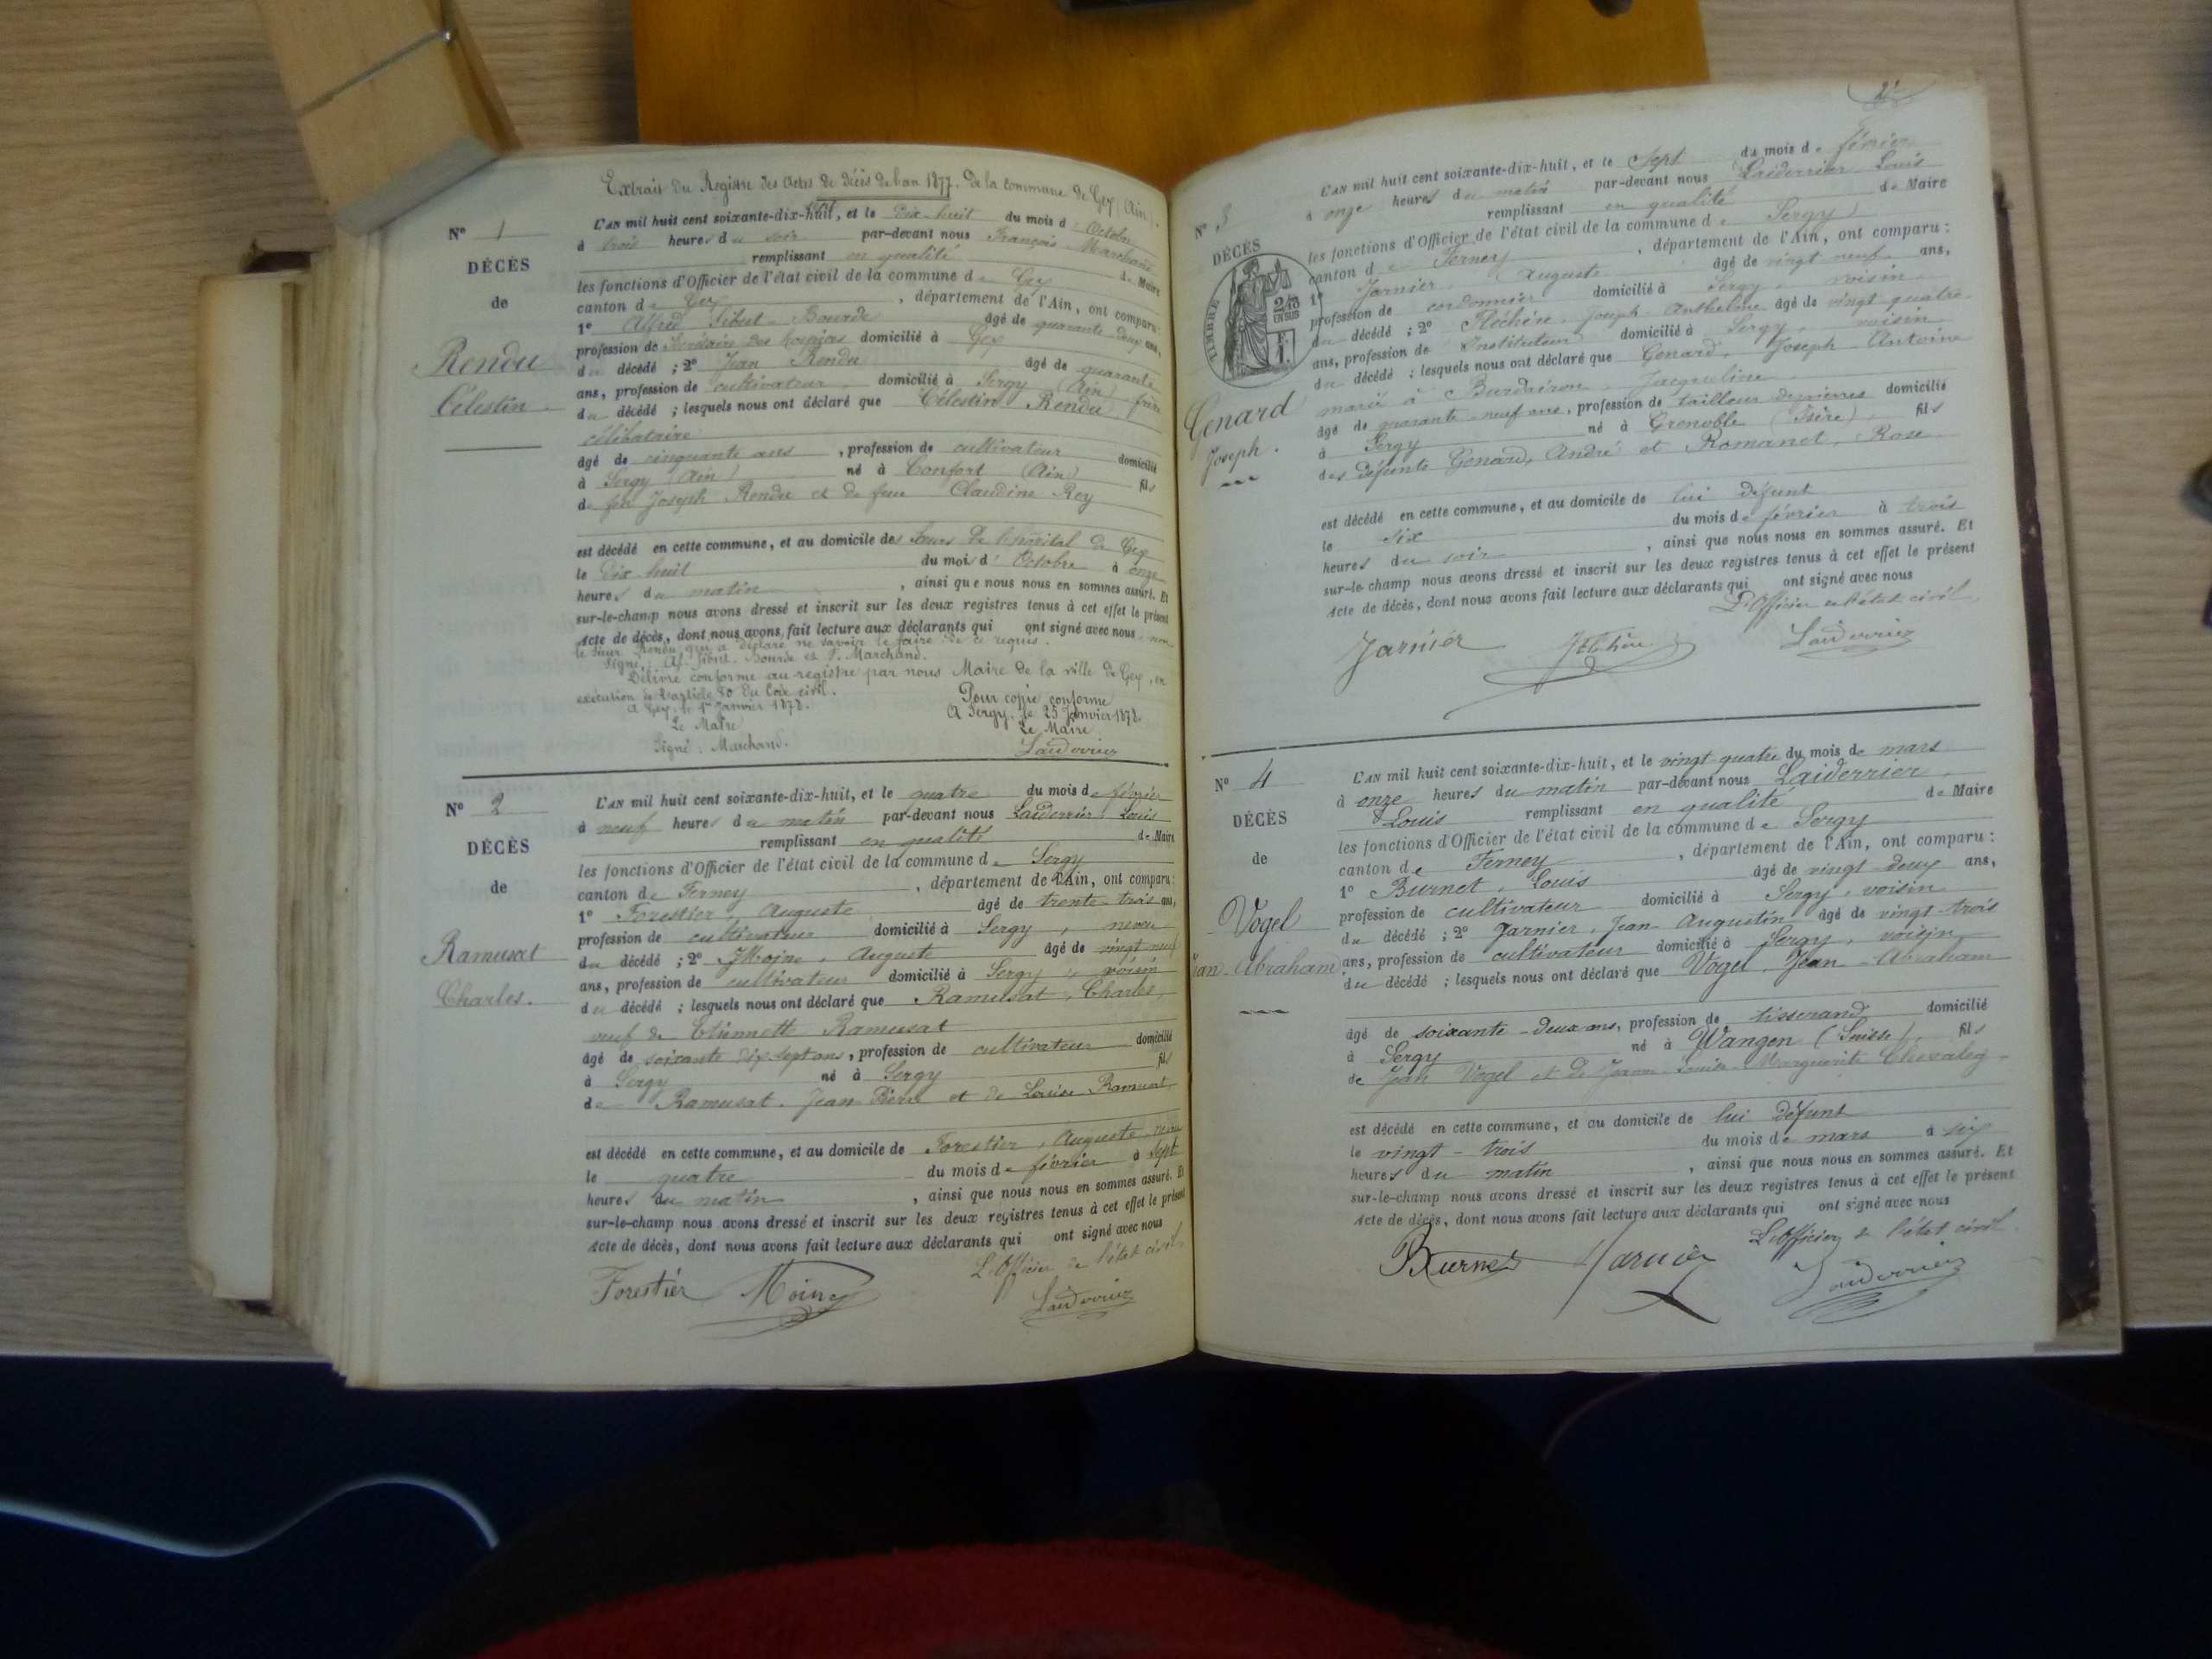 Extrait du Registre des Actes de décès de l'an 1877, de la commune de Gex (Ain).
N° 1
DÉCÈS
de
Rendu
Célestin
L'AN mil huit cent soixante-dix-huit, et le dix-huit du mois d'Octobre
à trois heures du soir par-devant nous François Marchand
remplissant en qualité de Maire
les fonctions d'Officier de l'état civil de la commune de Gex
canton de Gex, département de l'Ain, ont comparu:
1° Alfred Sibut-Bourde âgé de quarante-deux ans,
profession de Secrétaire des hospices domicilié à Gex
du décédé ; 2° Jean Rendu âgé de quarante
ans, profession de cultivateur domicilié à Sergy (Ain) frère
du décédé ; lesquels nous ont déclaré que Célestin Rendu
célibataire
âgé de cinquante ans, profession de cultivateur domicilié
à Sergy (Ain) né à Confort (Ain) fils
de feu Joseph Rendu et de feue Claudine Rey
est décédé en cette commune, et au domicile des Sœurs de l'hôpital de Gex
le dix-huit du mois d'Octobre à onze
heures du matin, ainsi que nous nous en sommes assuré. Et
sur-le-champ nous avons dressé et inscrit sur les deux registres tenus à cet effet le présent
Acte de décès, dont nous avons fait lecture aux déclarants qui ont signé avec nous, non
le sieur Rendu qui a déclaré ne savoir le faire de ce requis.
Signé : Af. Sibut-Bourde et F. Marchand.
Délivré conforme au registre par nous Maire de la ville de Gex, en
exécution de l'article 80 du Code civil.
A Gex, le 1er Janvier 1878.
Le Maire
Signé : Marchand.
Pour copie conforme
A Sergy, le 25 Janvier 1878.
Le Maire
Laiderrier
N° 2
DÉCÈS
de
Ramusat
Charles.
L'AN mil huit cent soixante-dix-huit, et le quatre du mois de février
à neuf heures du matin par-devant nous Laiderrier, Louis
remplissant en qualité de Maire
les fonctions d'Officier de l'état civil de la commune de Sergy
canton de Ferney, département de l'Ain, ont comparu:
1° Forestier, Auguste âgé de trente-trois ans,
profession de cultivateur domicilié à Sergy, neveu
du décédé ; 2° Moine, Auguste âgé de vingt-neuf
ans, profession de cultivateur domicilié à Sergy, voisin
du décédé ; lesquels nous ont déclaré que Ramusat, Charles,
veuf de Etiennette Ramusat
âgé de soixante-dix-sept ans, profession de cultivateur domicilié
à Sergy né à Sergy fils
de Ramusat, Jean Pierre et de Louise Ramusat
est décédé en cette commune, et au domicile de Forestier, Auguste, neveu
le quatre du mois de février à sept
heures du matin, ainsi que nous nous en sommes assuré. Et
sur-le-champ nous avons dressé et inscrit sur les deux registres tenus à cet effet le présent
Acte de décès, dont nous avons fait lecture aux déclarants qui ont signé avec nous
L'Officier de l'état civil
Forestier Moine Laiderrier
2
N° 3
DÉCÈS
TIMBRE
Genard
Joseph.
L'AN mil huit cent soixante-dix-huit, et le Sept du mois de février
à onze heures du matin par-devant nous Laiderrier Louis
remplissant en qualité de Maire
les fonctions d'Officier de l'état civil de la commune de Sergy
canton de Ferney, département de l'Ain, ont comparu:
1° Jarnier, Auguste âgé de vingt neuf ans,
profession de cordonnier domicilié à Sergy, voisin
du décédé ; 2° Fléchère, Joseph Anthelme âgé de vingt-quatre
ans, profession de Instituteur domicilié à Sergy, voisin
du décédé ; lesquels nous ont déclaré que Genard, Joseph-Antoine
marié à Jacqueline
âgé de quarante-neuf ans, profession de tailleur de pierres domicilié
à Sergy né à Grenoble (Isère) fils
des défunts Genard, André et Romanet, Rose
est décédé en cette commune, et au domicile de lui défunt
le six du mois de février à trois
heures du soir, ainsi que nous nous en sommes assuré. Et
sur-le champ nous avons dressé et inscrit sur les deux registres tenus à cet effet le présent
Acte de décès, dont nous avons fait lecture aux déclarants qui ont signé avec nous
L'Officier de l'état civil,
Jarnier Laiderrier
N° 4
DÉCÈS
de
Vogel
Jean-Abraham
L'AN mil huit cent soixante-dix-huit, et le vingt-quatre du mois de mars
à onze heures du matin par-devant nous Laiderrier,
Louis remplissant en qualité de Maire
les fonctions d'Officier de l'état civil de la commune de Sergy
canton de Ferney, département de l'Ain, ont comparu:
1° Burnet, Louis âgé de vingt-deux ans,
profession de cultivateur domicilié à Sergy, voisin
du décédé ; 2° Jarnier, Jean Augustin âgé de vingt-trois
ans, profession de cultivateur domicilié à Sergy, voisin
du décédé ; lesquels nous ont déclaré que Vogel, Jean-Abraham
âgé de soixante-deux ans, profession de tisserand domicilié
à Sergy né à Wangen (Suisse) fils
de Jean Vogel et de Jeanne-Louise-Marguerite
est décédé en cette commune, et au domicile de lui défunt
le vingt-trois du mois de mars à six
heures du matin, ainsi que nous nous en sommes assuré. Et
sur-le-champ nous avons dressé et inscrit sur les deux registres tenus à cet effet le présent
Acte de décès, dont nous avons fait lecture aux déclarants qui ont signé avec nous
L'Officier de l'état civil
Burnet Jarnier Laiderrier